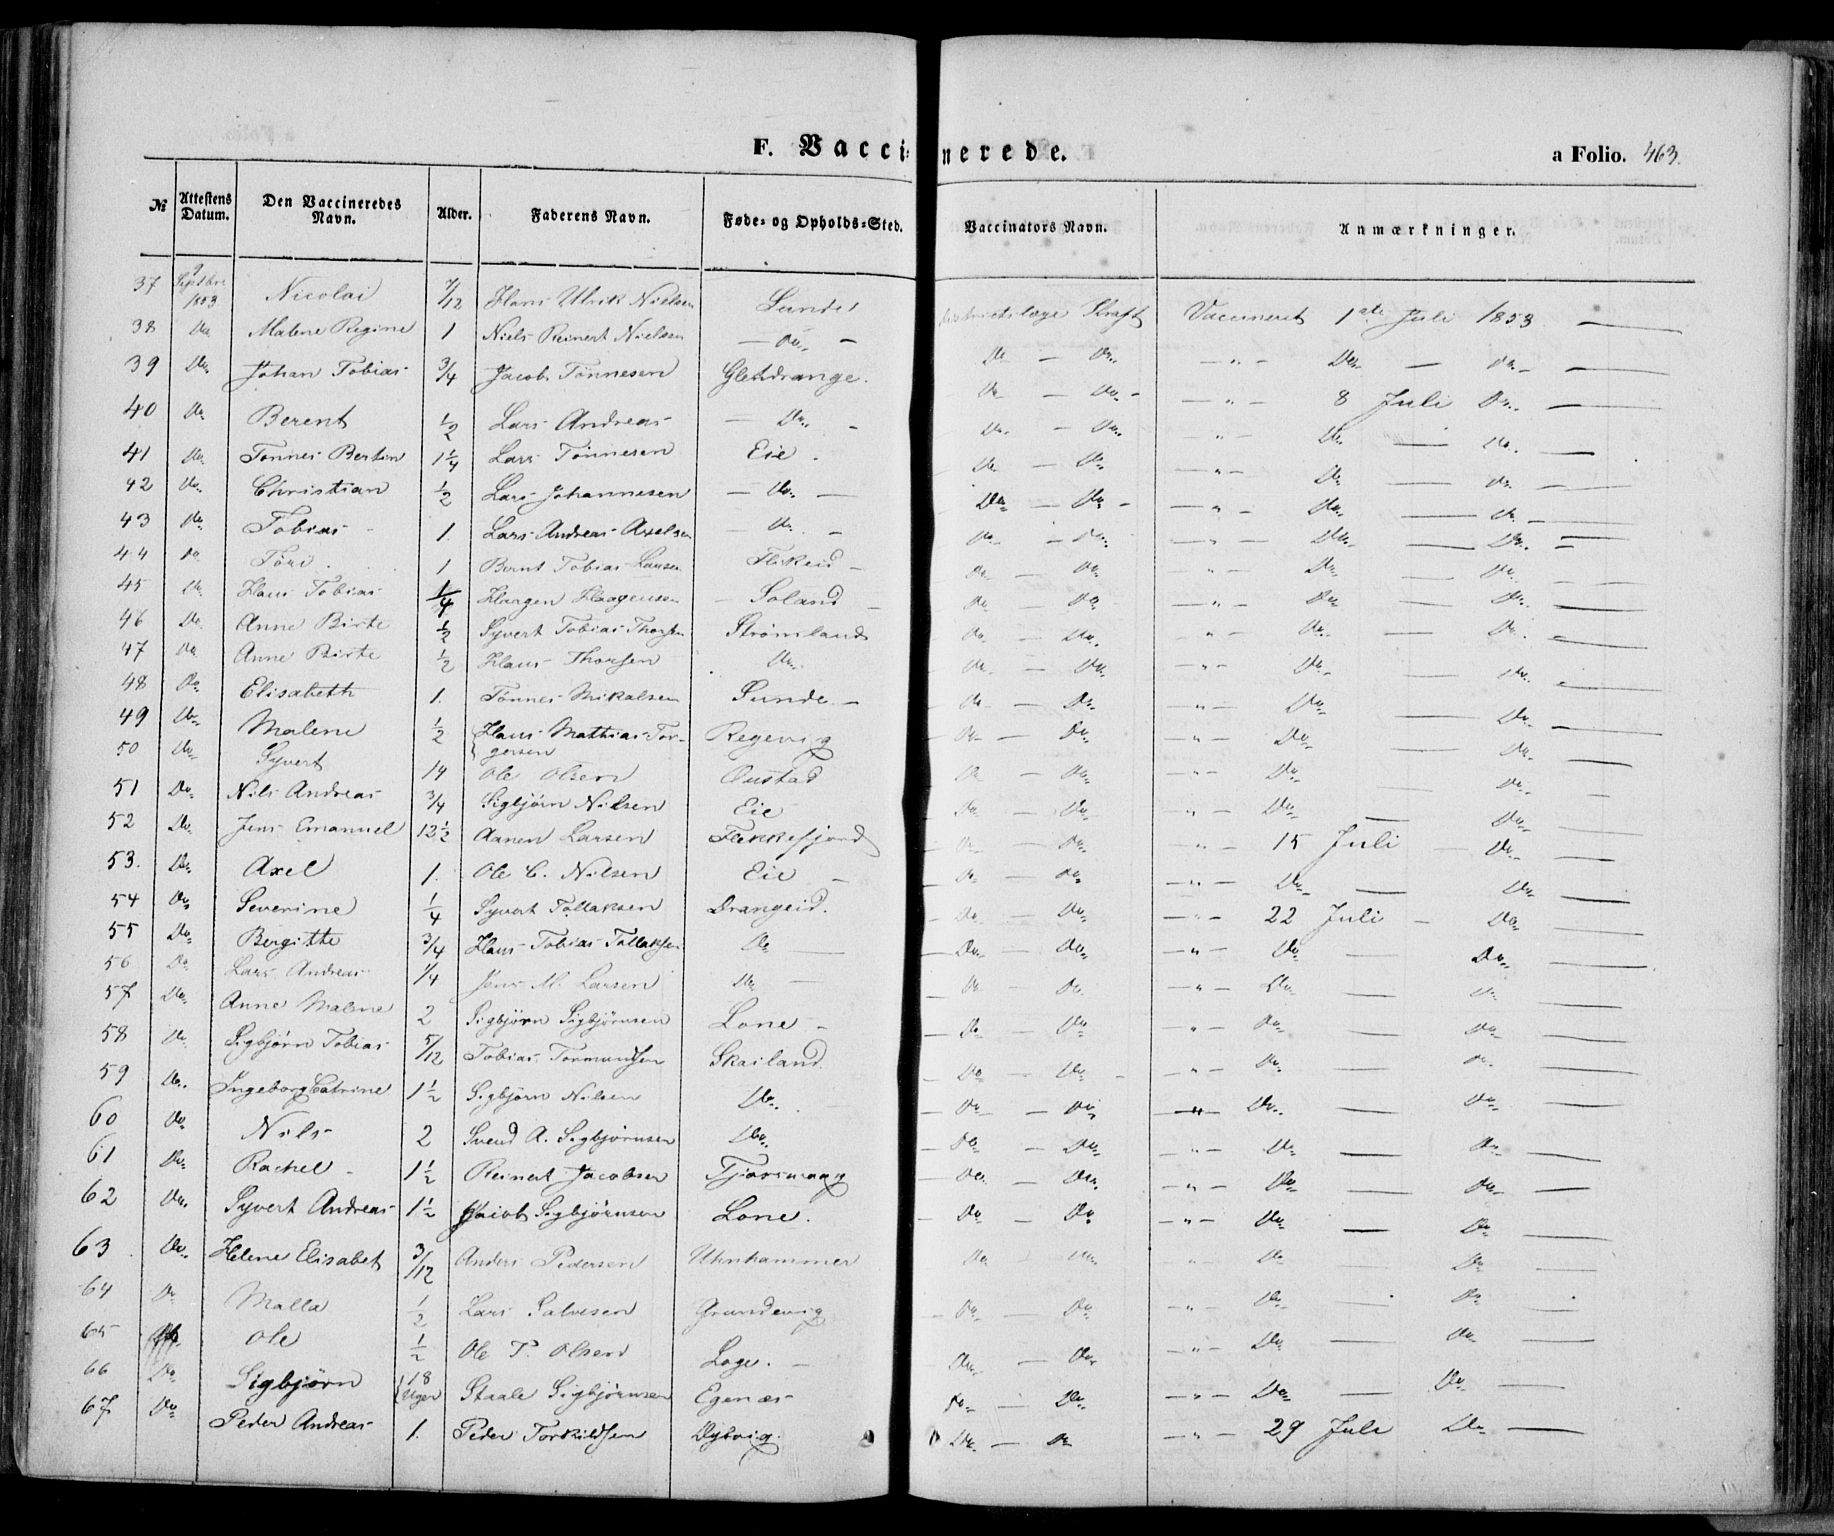 F. Vaccinerede. a Folio. 463.
№ Attestens Datum. Den Vaccineredes Navn. Alder. Faderens Navn. Føde- og Opholds-Sted. Vaccinators Navn. Anmærkninger.
37 9 Septbr 1853 Nicolai 7/12 Hans Ulrik Nielsen Sunde Districtslæge Kraft Vaccineret 1ste Juli 1853 —
38 Do. Malene Regine 1 Niels Reinert Nielsen — Do. — Do — Do. — " — Do. — Do. —
39 Do. Johan Tobias 3/4 Jacob Tønnesen Glendrange. Do — Do. — — " — 8 Juli Do. —
40 Do. Berent 1/2 Lars Andreas — Do. — Do. — Do. " — Do. — Do. —
41 Do. Tønnes Bertin 1 1/4 Lars Tønnesen Eie. Do — Do. — " — Do — Do. —
42 Do. Christian 1/2 Lars Johannesen — Do. — Do — Do — — " — Do. — Do. —
43 Do. Tobias 1. Lars Andreas Axelsen Do. — Do — Do. — " — Do. — Do. —
44 Do 1 Bernt Tobias Larsen Flikeid — Do. — Do. — " — Do. — Do. —
45 Do. Hans Tobias 1/4 Haagen Haagensen — Soland — Do. — Do — " — Do — Do. —
46 Do. Anne Birte 1/2 Syvert Tobias Thorsen Strømland Do. — Do. " — Do. — Do. —
47 Do Anne Birte 1/2 Hans Thorsen Do. — Do. — Do. — " — Do. — Do. —
48 Do. Elisabeth 1. Tønnes Mikalsen Sunde. — Do. — Do. " — Do. — Do. —
49 Do. Malene 1/2 Hans Mathias Tor-
gersen Regevig Do — Do. " — Do. — Do. —
50 Do. Syvert 14 Ole Olsen Oustad Do — Do. " — Do. — Do. —
51 Do. Nils Andreas 3/4 Sigbjørn Nilsen Eie — Do. — Do. " — Do. — Do. —
52 Do. Jens Emanuel 12 1/2 Aanen Larsen Flekkefjord — Do — Do. " — 15 Juli — Do. —
53. Do. Axel 1. Ole C. Nilsen Eie — — Do. — Do. " — Do. — Do. —
54 Do. Severine 1/4 Syvert Tollaksen Drangeid. — Do. — Do. " — 22 Juli — Do. —
55 Do. Bergitte 3/4 Hans Tobias Tollaksen Do. — — Do. — Do. " — Do. — Do. —
56 Do. Lars Andreas 1/4 Jens M. Larsen Do. — — Do. — Do. " — Do. — Do. —
57 Do. Anne Malene 2 Sigbjørn Sigbjørnsen Lone — — Do. — Do. " — Do. — Do. —
58 Do. Sigbjørn Tobias 5/12 Tobias Tormundsen Skailand. — Do. — Do. — " — Do. — Do. —
59 Do. Ingeborg Catrine 1 1/2 Sigbjørn Nilsen Do. — Do. — Do. — " — Do. — Do. —
60 Do. Nils 2 Svend A. Sigbjørnsen Do. — Do. — Do. — " — Do. — Do. —
61 Do. Rachel — 1 1/2 Reinert Jacobsen Tjørsmaag — Do. — Do. " — Do. — Do. —
62 Do. Syvert Andreas 1 1/2 Jacob Sigbjørnsen Lone. — Do — Do. " — Do. — Do. —
63 Do. Helene Elisabet 3/12 Anders Pedersen Uhnhammer Do. — Do. — " — Do. — Do. —
64 Do. Malla 1/2 Lars Salvesen Grundevig — Do. — Do. " — Do. — Do. —
65 Ole 1/2 Ole T. Olsen Loge. — Do. — Do. — " — Do. — Do. —
66 Do. Sigbjørn 18 Uger Staale Sigbjørnsen Egenæs Do. — Do. — " — Do. — Do. —
67 Do. Peder Andreas 1. Peder Torkildsen Dybvig. Do. — Do — " — 29 Juli Do —